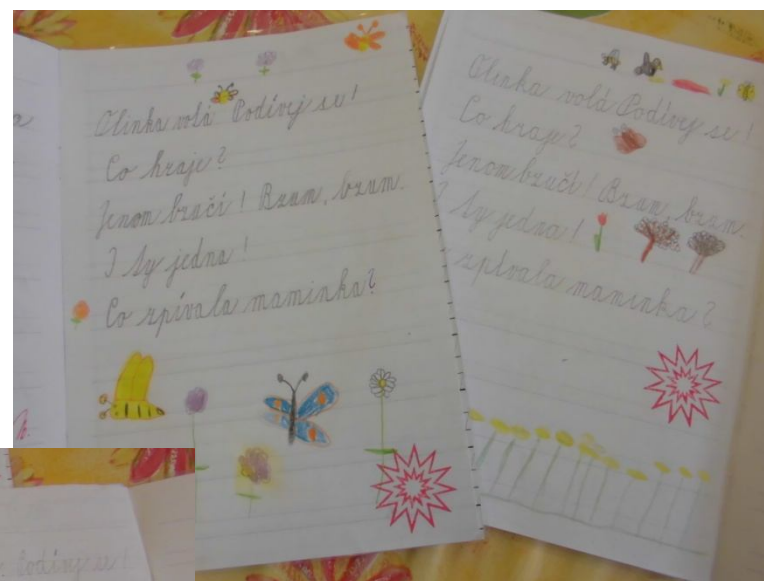 Olinka volá Podívej se!
Co hraje?
Jenom bzučí! Bzum, bzum.
I ty jedna!
Co zpívala maminka?
Olinka volá Podívej se!
Co hraje?
Jenom bzučí! Bzum, bzum.
I ty jedna!
zpívala maminka?
Podívej se!